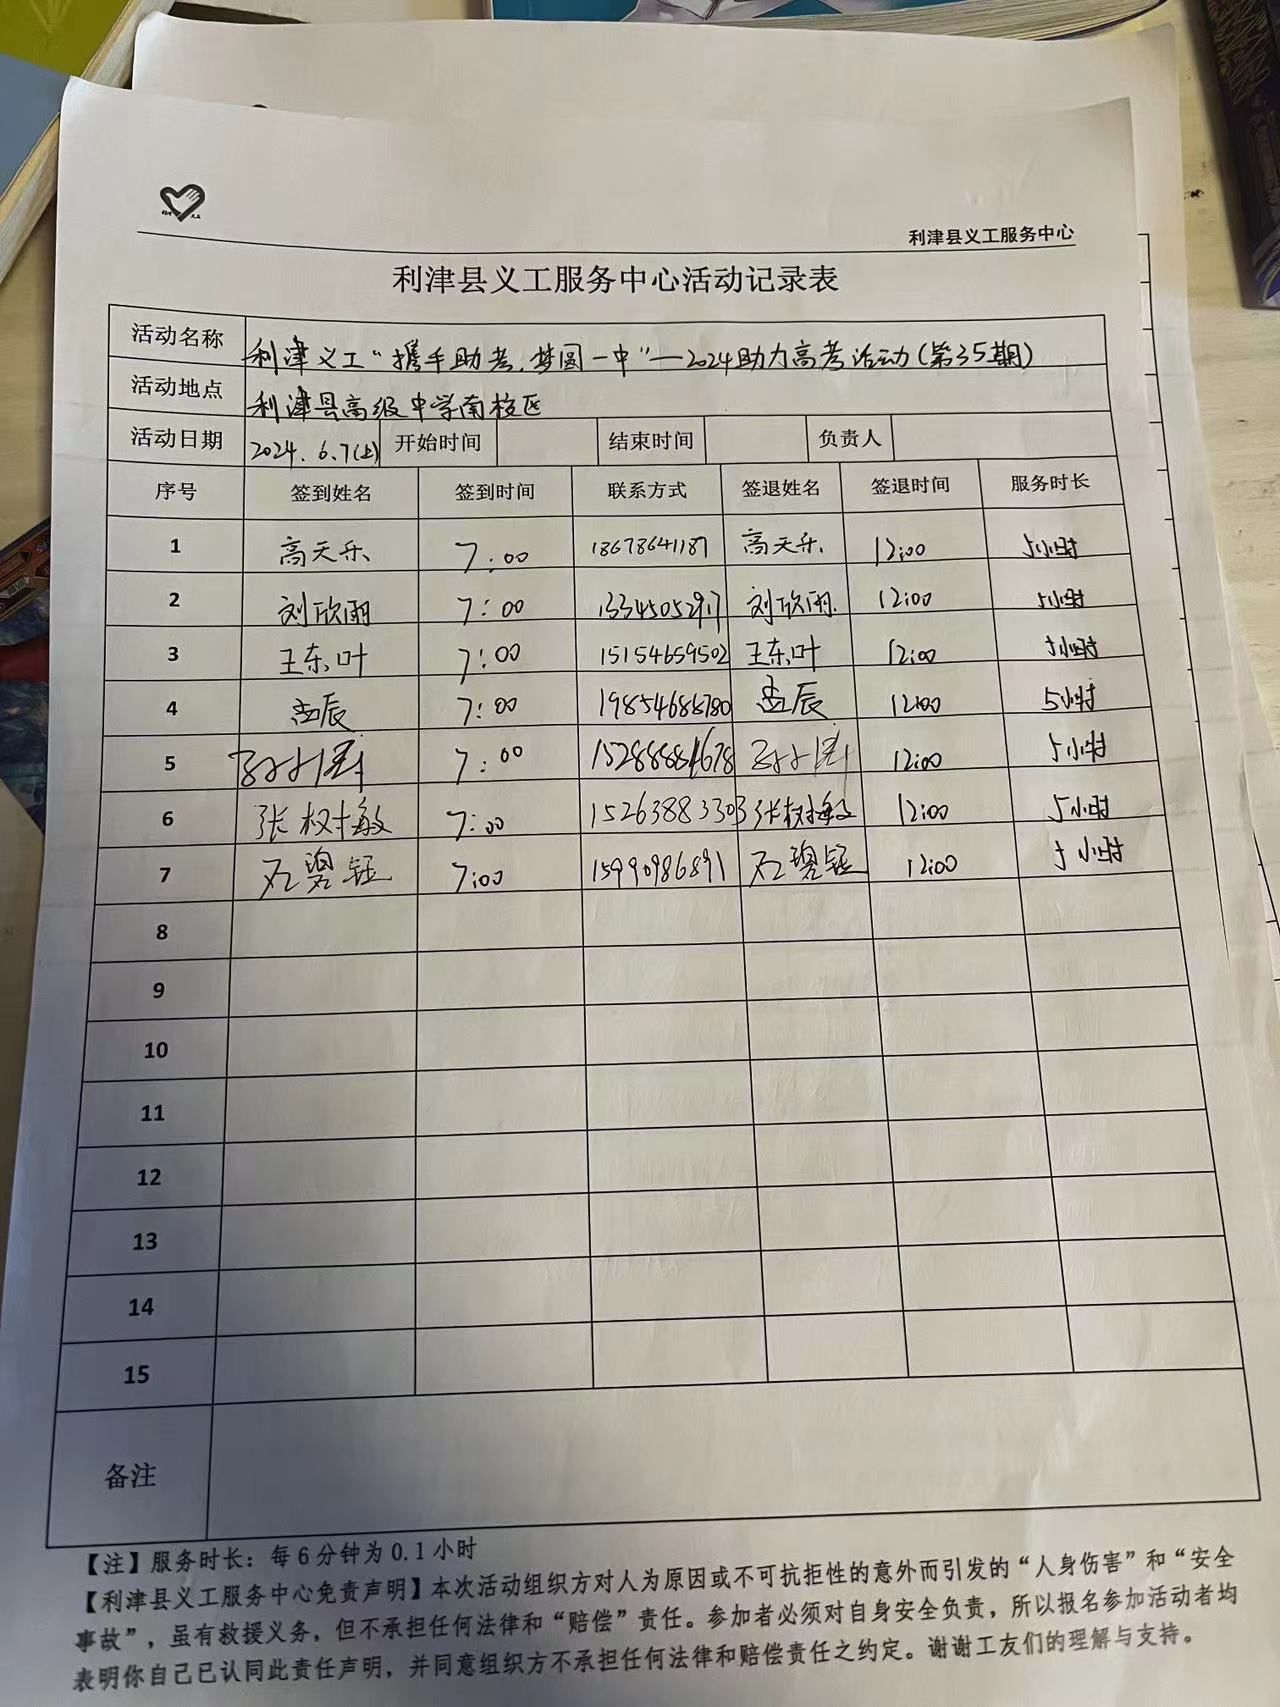 利津县义工服务中心
利津县义工服务中心活动记录表
活动名称 利津义工“携手助考,梦圆一中”—2024助力高考活动(第35期)
活动地点 利津县高级中学南校区
活动日期 2024.6.7(上) 开始时间 结束时间 负责人
序号 签到姓名 签到时间 联系方式 签退姓名 签退时间 服务时长
1 高天乐 7:00 18678641187 高天乐 12:00 5小时
2 刘欣雨 7:00 13345052917 刘欣雨 12:00 5小时
3 王东叶 7:00 15154659502 王东叶 12:00 5小时
4 孟辰 7:00 19854686780 孟辰 12:00 5小时
5 7:00 12:00 5小时
6 张树敏 7:00 15263883303 张树敏 12:00 5小时
7 石碧钰 7:00 15990986891 石碧钰 12:00 5小时
8
9
10
11
12
13
14
15
备注
【注】服务时长：每6分钟为0.1小时
【利津县义工服务中心免责声明】本次活动组织方对人为原因或不可抗拒性的意外而引发的“人身伤害”和“安全
事故”，虽有救援义务，但不承担任何法律和“赔偿”责任。参加者必须对自身安全负责，所以报名参加活动者均
表明你自己已认同此责任声明，并同意组织方不承担任何法律和赔偿责任之约定。谢谢工友们的理解与支持。